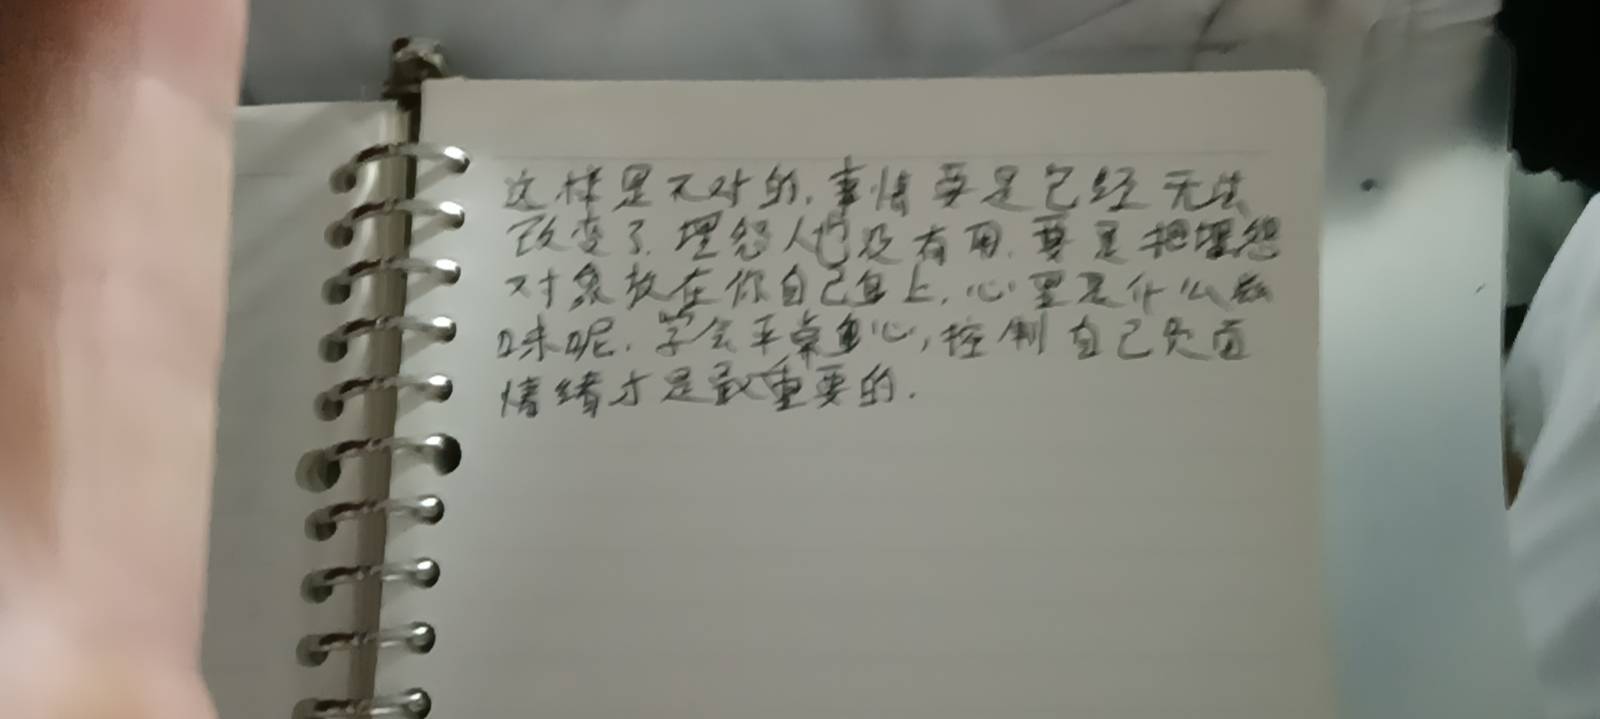 这样是不对的.事情要是已经无法
改变了.埋怨人也没有用.要是把埋怨
对象放在你自己身上.心里是什么滋
味呢.学会平常心,控制自己负面
情绪才是最重要的.